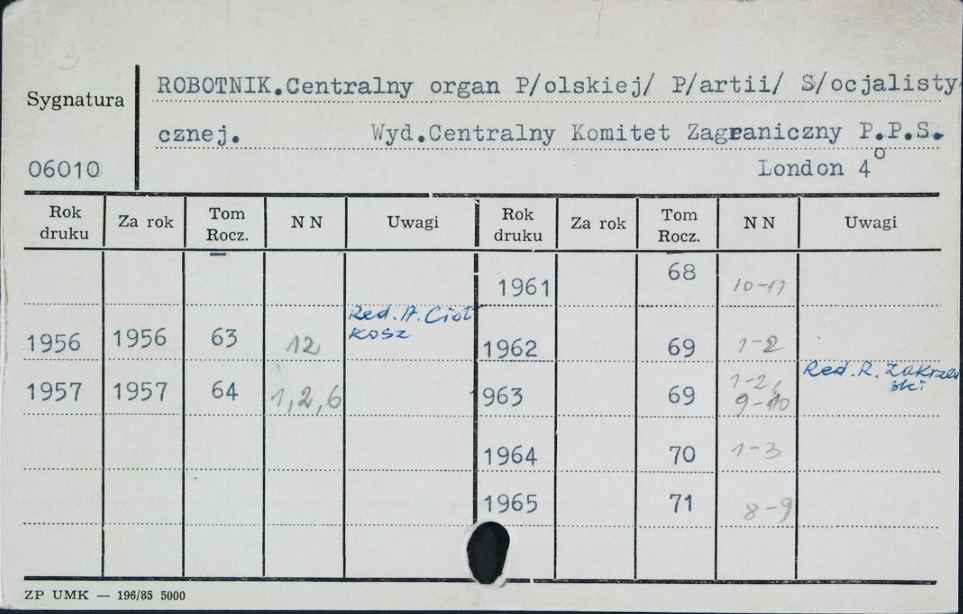 ROBOTNIK.Centralny organ P/olskiej/ P/artii/ S/ocjalisty
Sygnatura
cznej. Wyd.Centralny Komitet Zagraniczny P.P.S.
06010 London 4°
Rok druku Za rok Tom Rocz. N N Uwagi Rok druku Za rok Tom Rocz. N N Uwagi
1961 68 10-11
Red. A. Cioł
kosz
1956 1956 63 12 1962 69 1-2
Red. R. Zakrzew
ski
1957 1957 64 1,2,6 1963 69 1-2,
9-10
1964 70 1-3
1965 71 8-9
ZP UMK — 196/85 5000